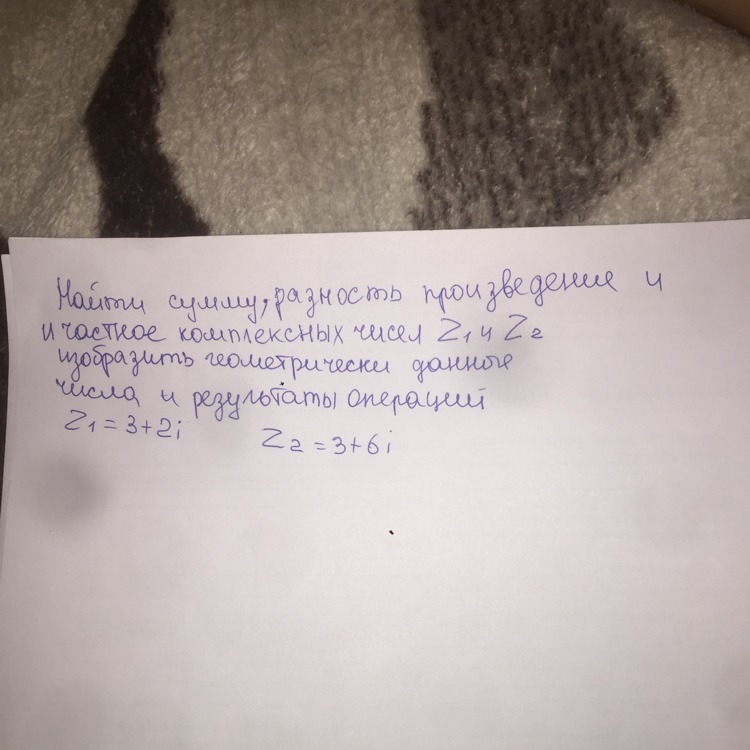 Найти сумму, разность произведение и
и частное комплексных чисел Z₁ и Z₂
изобразить геометрически данные
числа и результаты операций
Z₁ = 3+2i Z₂ = 3+6i